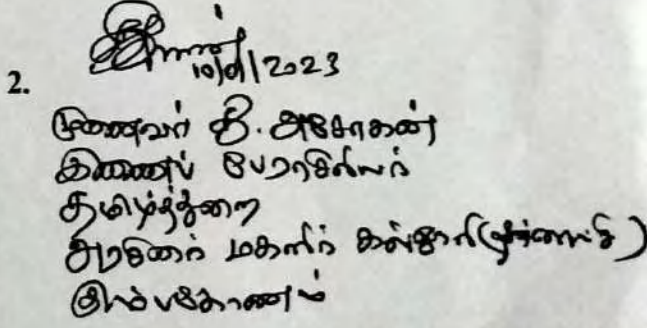 10/9/2023
2.
முனைவர் சீ. அசோகன்
இணைப் பேராசிரியர்
தமிழ்த்துறை
அரசினர் மகளிர் கல்லூரி (தன்னாட்சி)
கும்பகோணம்